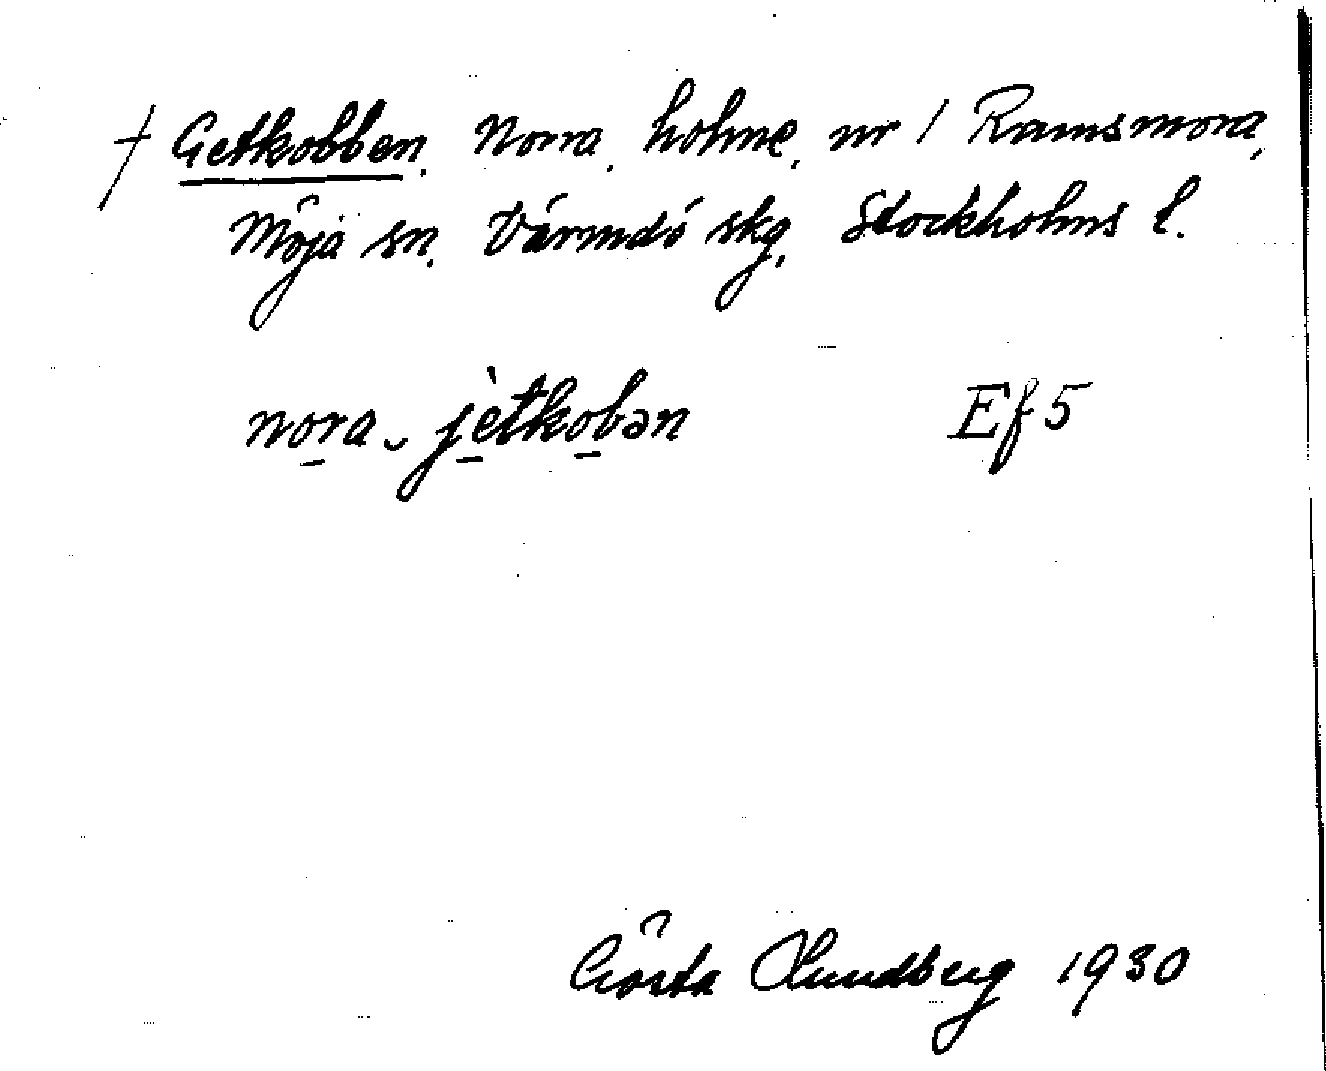 † Getkobben, Norra, holme, nr 1 Ramsmora,
Möja sn. Värmdö skg, Stockholms l.
nora ̮ jètkobən Ef 5
Gösta Lundberg 1930